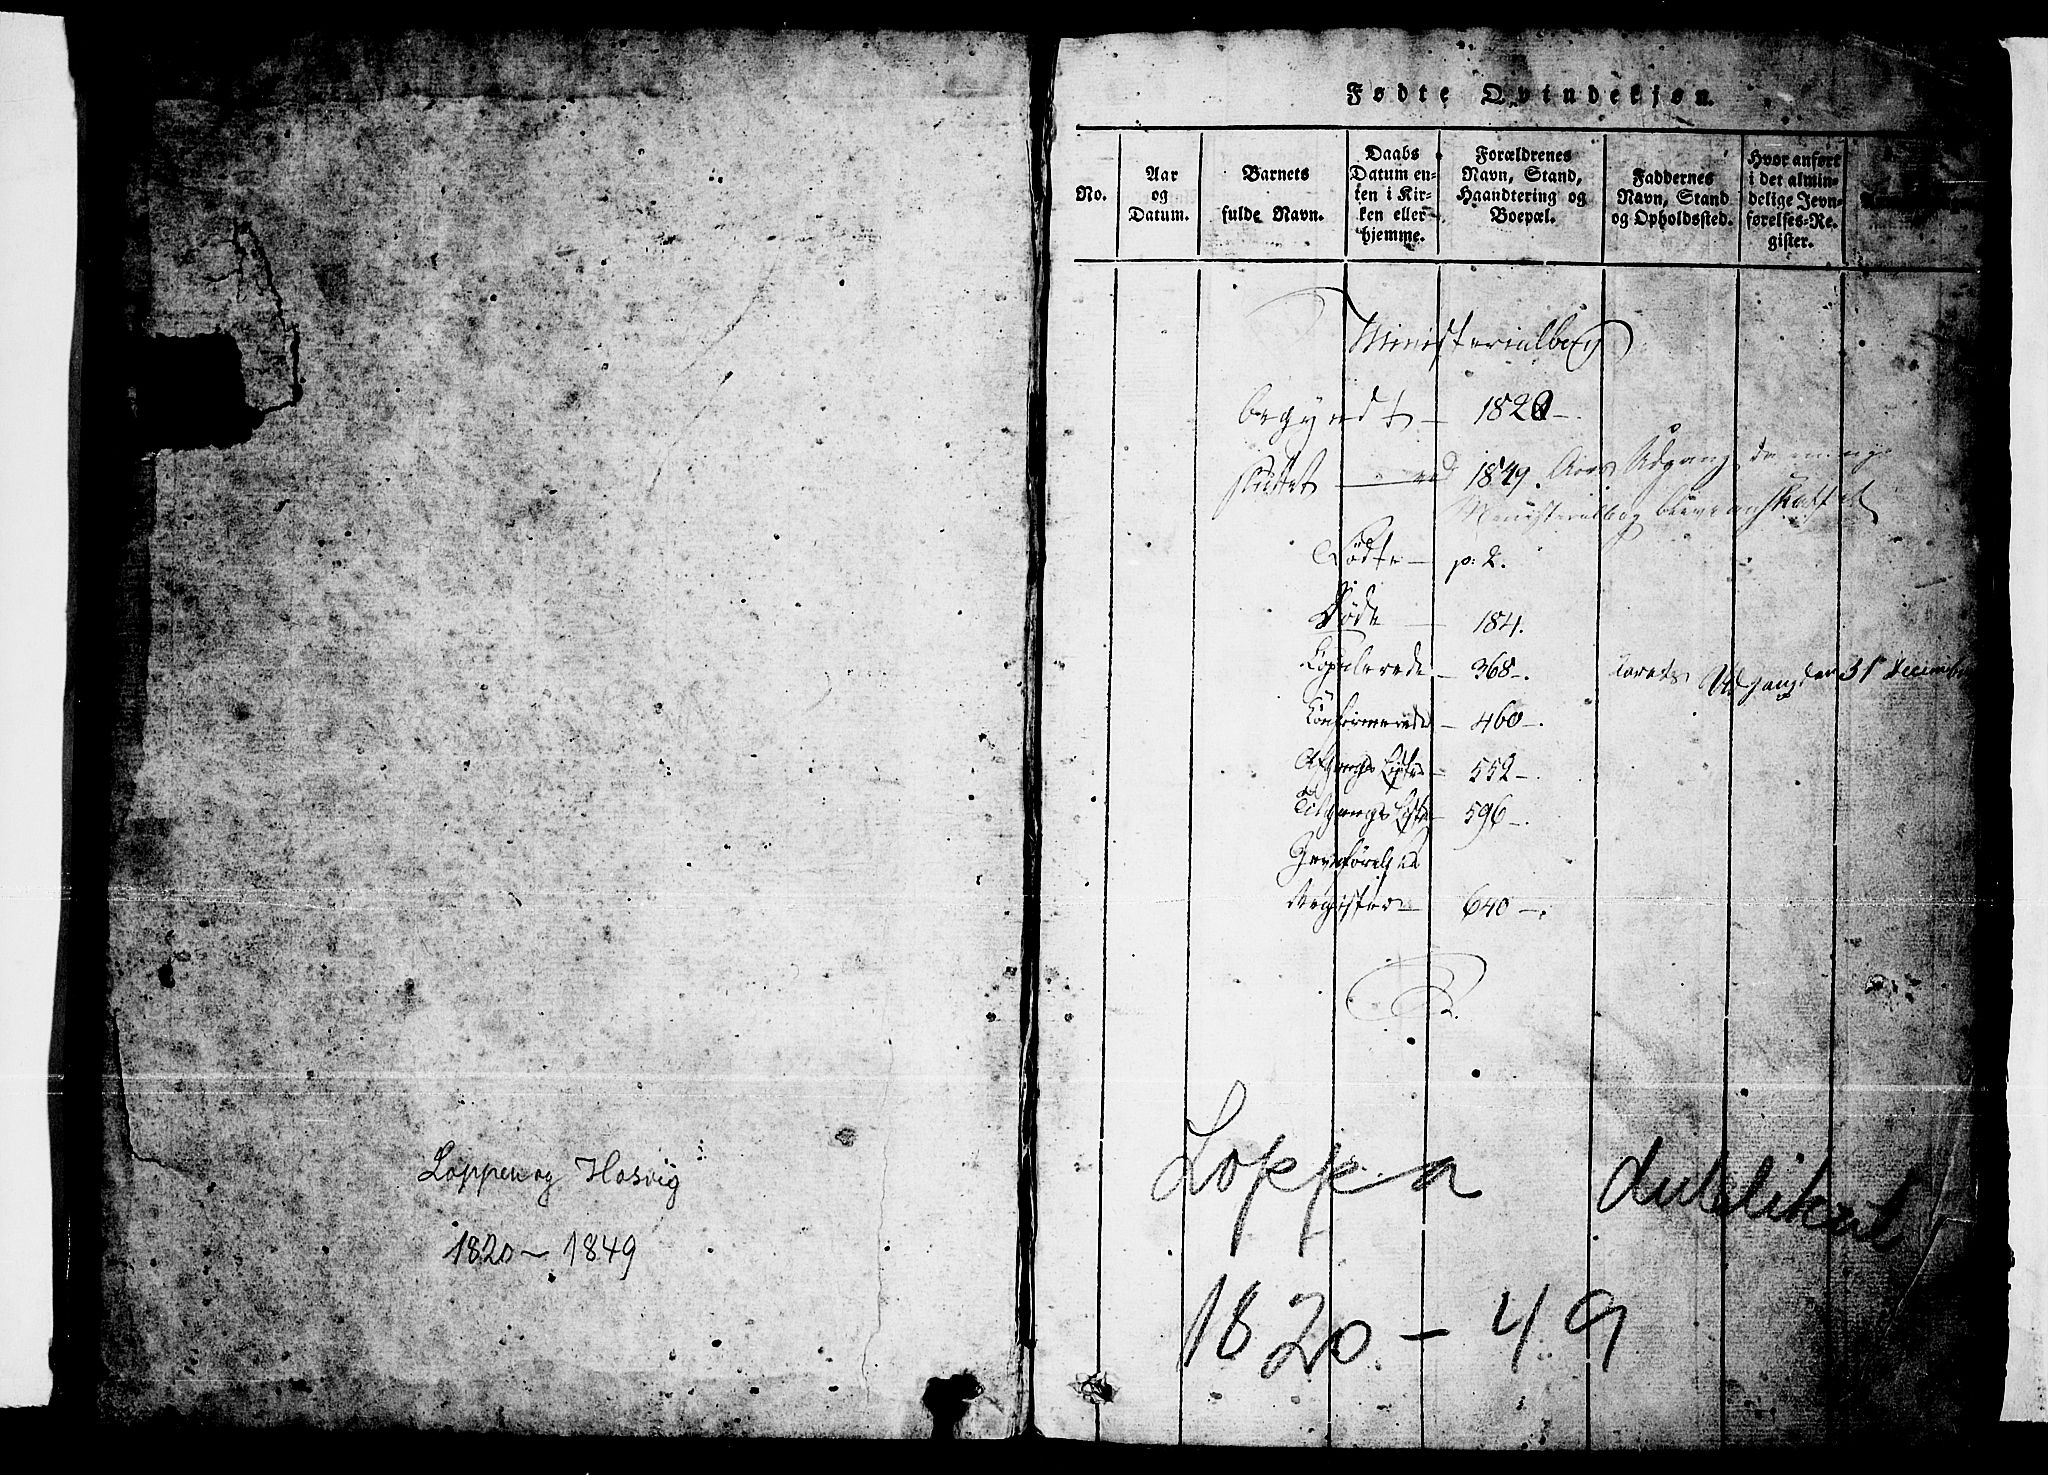 Loppen og Hasvig
1820 – 1849
Fødte Qvindekjøn.
No.
Aar og Datum.
Barnets fulde Navn.
Daabs Datum en- ten i Kir- ken eller hjemme.
Forældrenes Navn, Stand, Haandtering og Boepæl.
Faddernes Navn, Stand og Opholdssted.
Hvor anført i det almin- delige Jevn- førelses-Re- gister.
Ministerialbog
begyndt – 1820 –
sluttet – ved 1849. Aars Udgang, da en nye
Ministerialbog blev anskaffet
Fødte – p: 2.
Døde – 184.
Copulerede – 368 –. Udgang den 31 December
Confirmerede – 460 –.
Afgangs Liste – 552 –.
Tilgangs Liste – 596 –.
Jevnførelses
Register – 640 –.
Loppa dublikat
1820 – 49